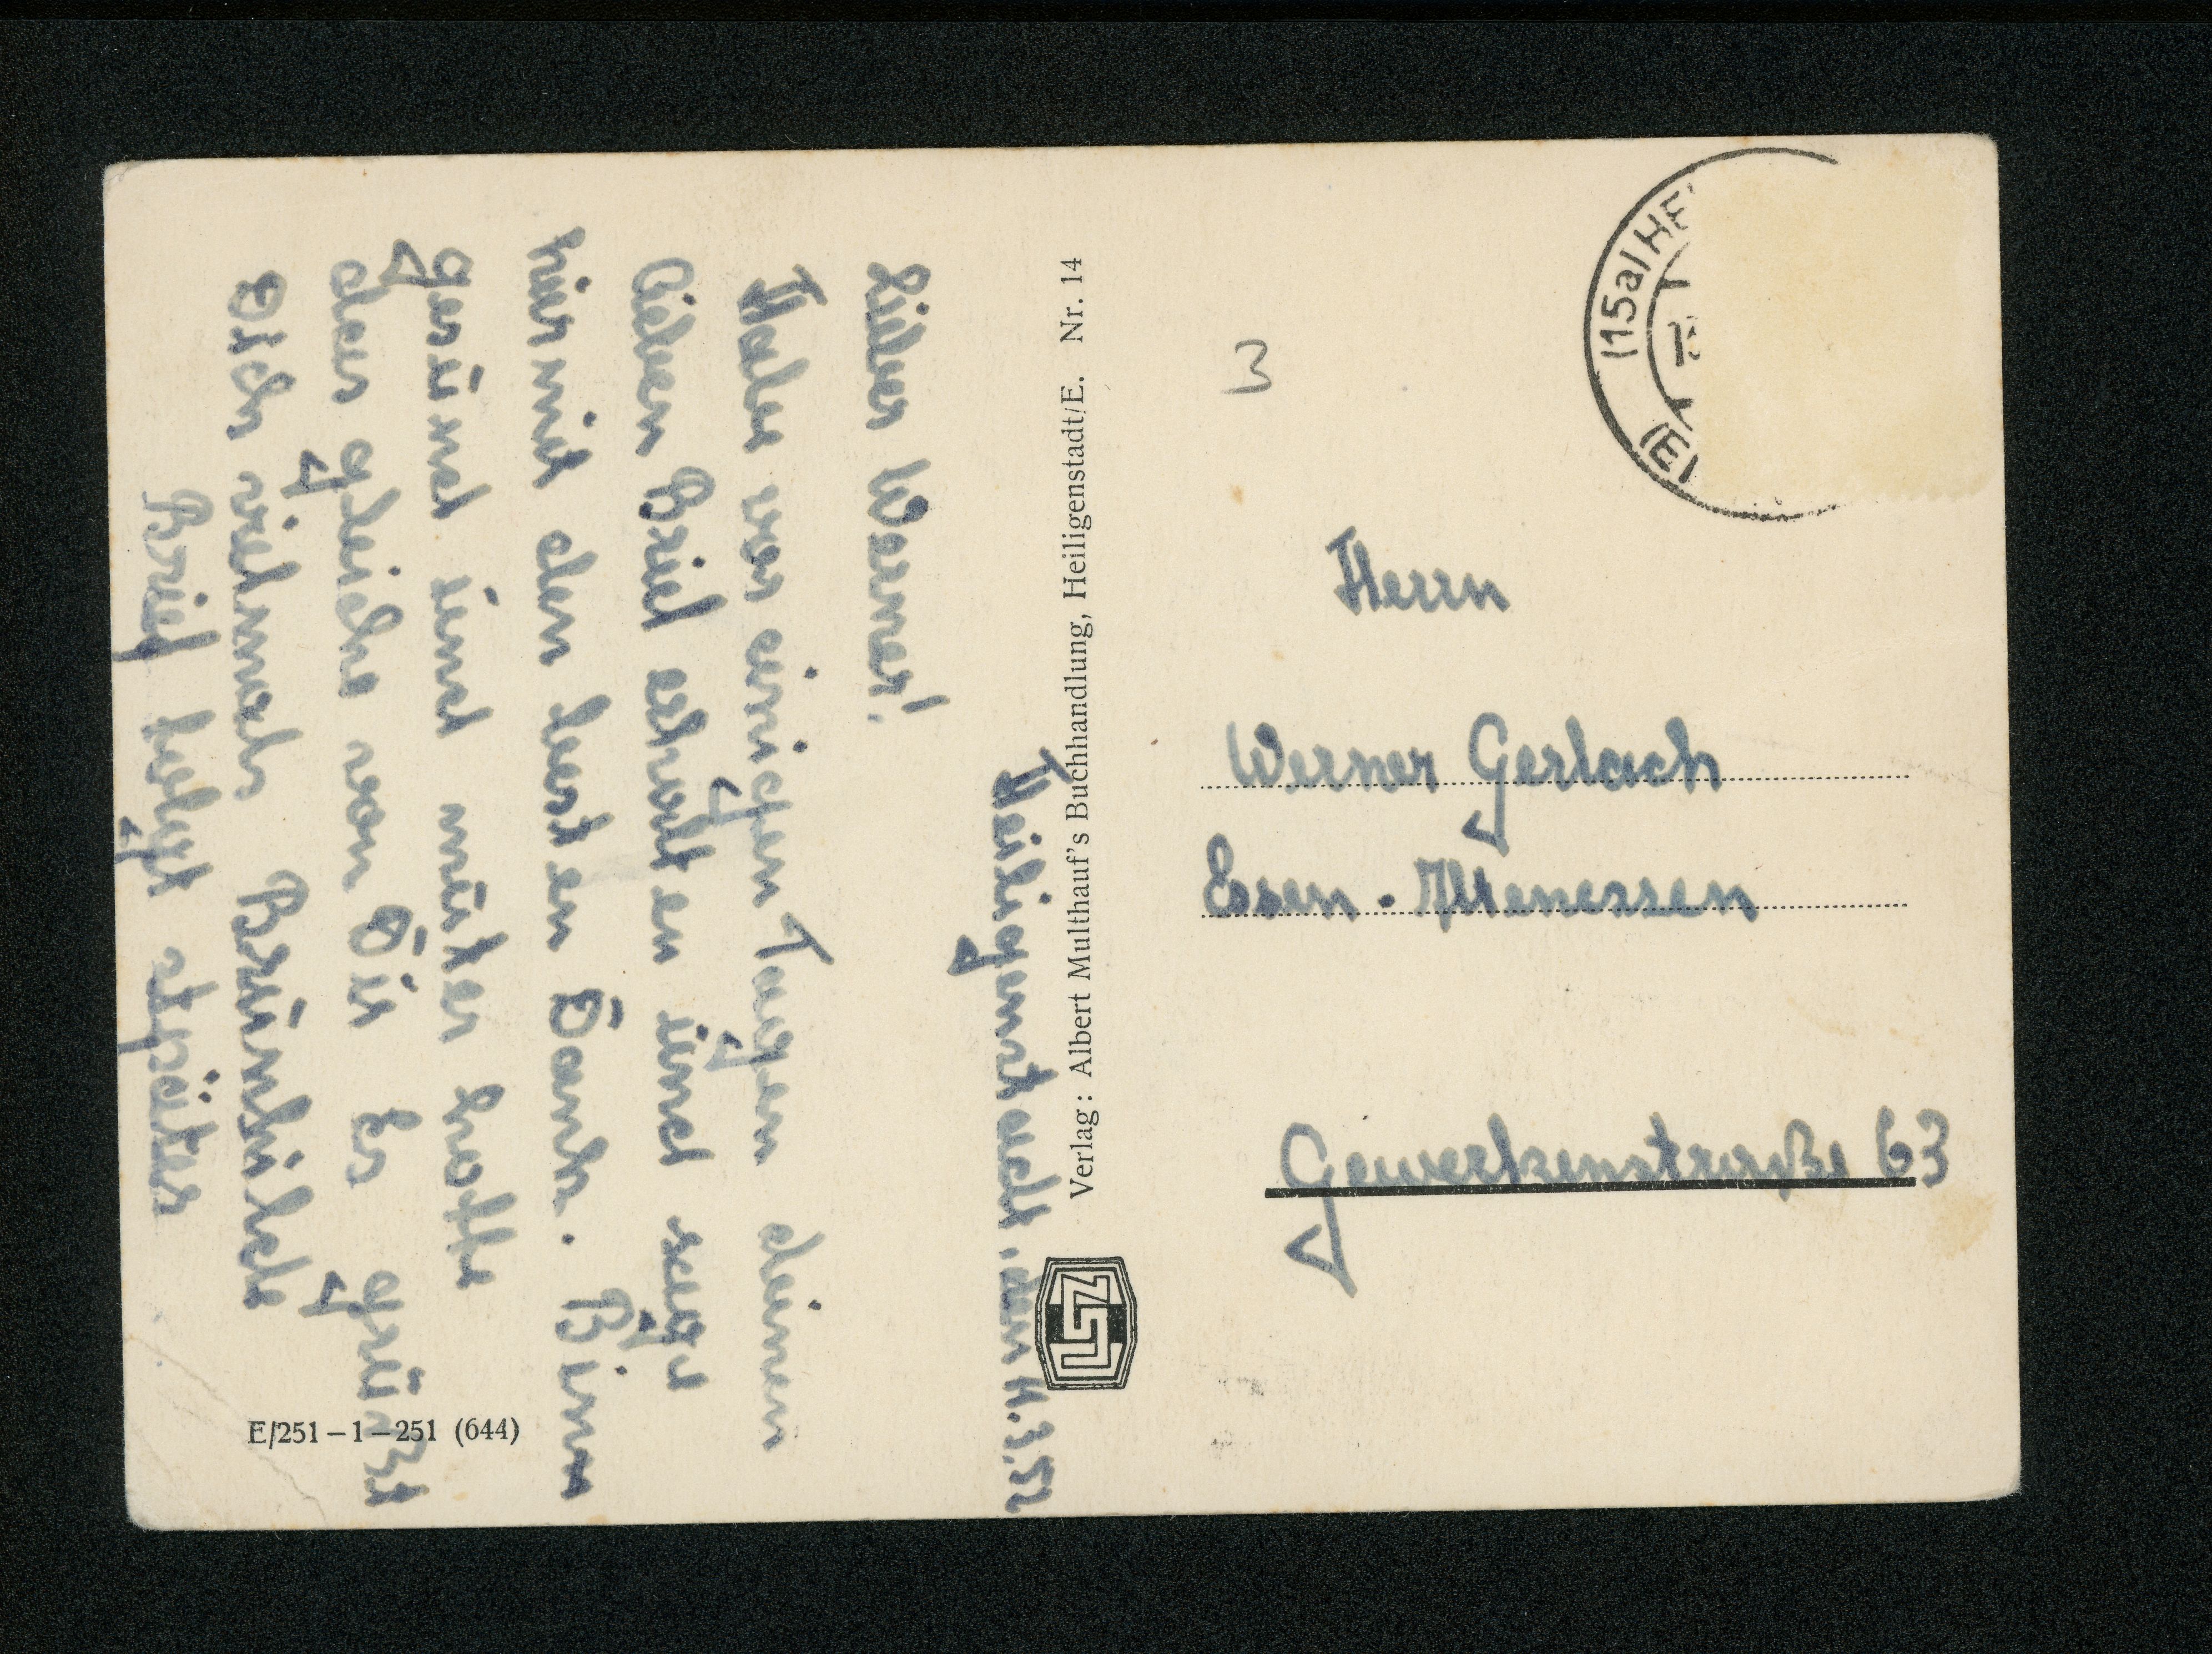 Heiligenstadt, den 11.3.52
Lieber Werner!
Habe vor einigen Tagen deinen
lieben Brief erhalten und sage
hiermit den besten Dank. Binn
gesund und munter hoffe
das gleiche von Dir Es grüßt
Dich vielmals Brunhilde
Brief folgt später
E/251-1-251 (644)
Verlag: Albert Multhauf's Buchhandlung, Heiligenstadt/E. Nr. 14
3
(15a) HE
(E
Herrn
Werner Gerlach
Essen-Altenessen
Gewerkenstraße 63